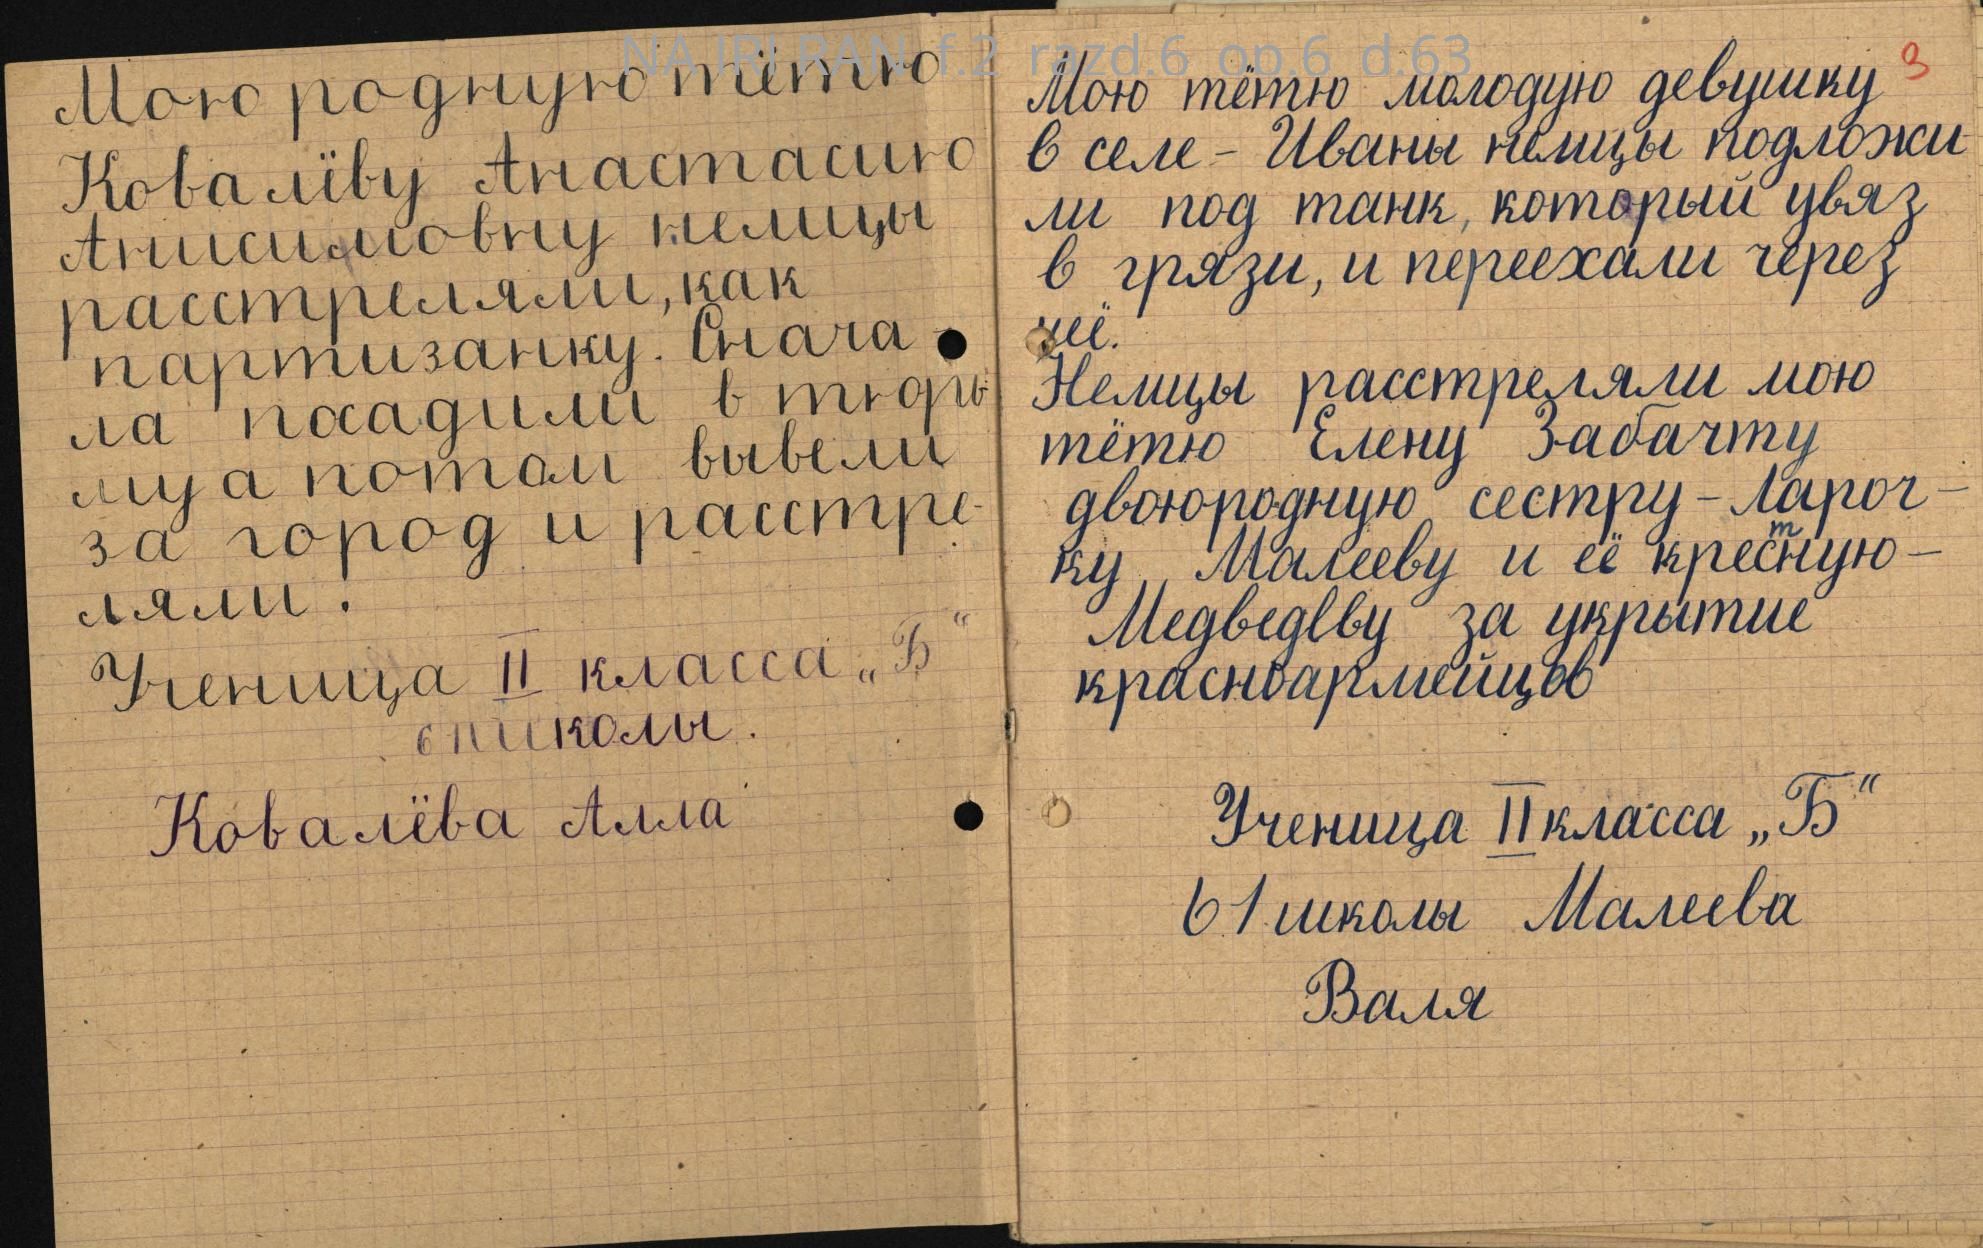 NA IRI RAN f.2 razd.6 op.6 d.63
Мою родную тётю
Ковалёву Анастасию
Анисимовну немцы
расстреляли, как
партизанку. Снача-
ла посадили в тюрь-
му а потом вывели
за город и расстре-
ляли.
Ученица II класса „Б“
школы.
Ковалёва Алла
3
Мою тётю молодую девушку
в селе - Иваны немцы подложи
ли под танк, который увяз
в грязи, и переехали через
неё.
Немцы расстреляли мою
тётю Елену Забачту
двоюродную сестру - Лароч-
ку Малееву и её крестную -
Медведеву за укрытие
красноармейцов
Ученица II класса „Б“
61 школы Малеева
Валя